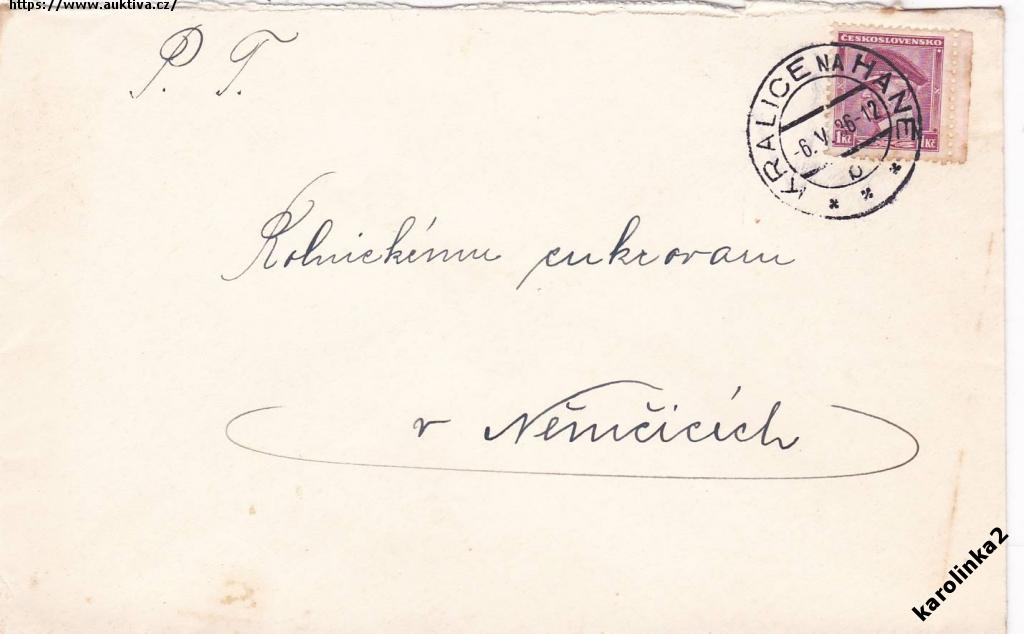 https://www.auktiva.cz/
P. T.
ČESKOSLOVENSKO
1Kč 1Kč
KRALICE NA HANÉ
-6. V. 36-12
b
Rolnickému cukrovaru
v Němčicích
karolinka2